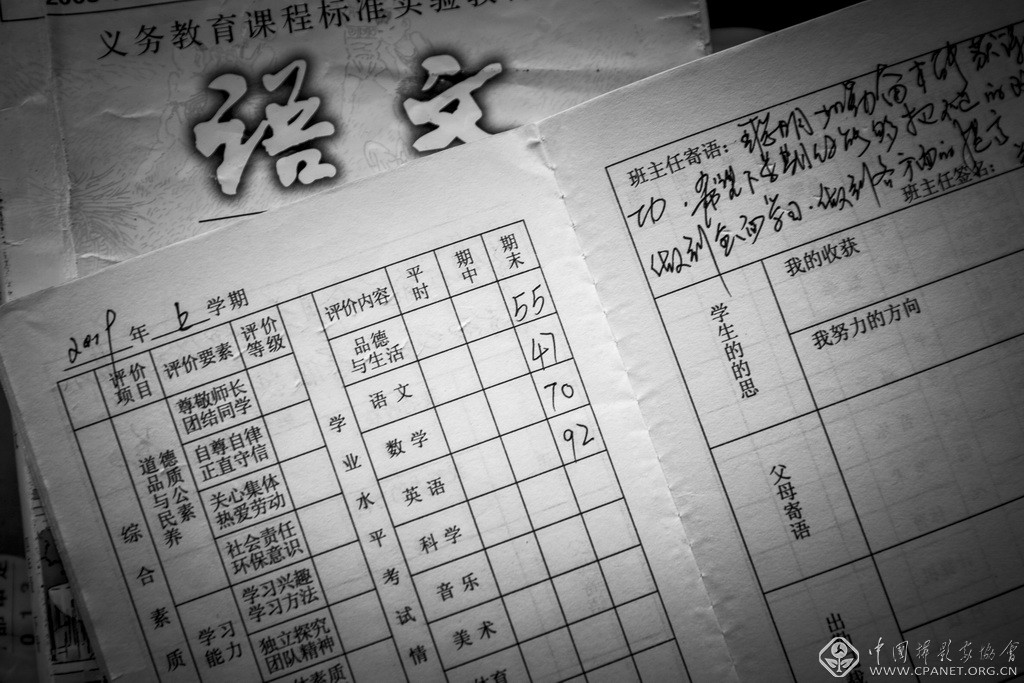 义务教育课程标准实验教
语文
年 上 学期
评价项目 评价要素 评价等级
尊敬师长
团结同学
自尊自律
正直守信
关心集体
热爱劳动
社会责任
环保意识
学习兴趣
学习方法
独立探究
团队精神
道德品质与公民素养
学习能力
综合素质
学业水平考试情
评价内容 平时 期中 期末
品德与生活 55
语文 47
数学 70
英语 92
科学
音乐
美术
班主任寄语:
功,希望下学期你能够把
做到全面学习,做到各方面的提
班主任签名:
学生的的思
我的收获
我努力的方向
父母寄语
出
中国摄影家协会
WWW.CPANET.ORG.CN